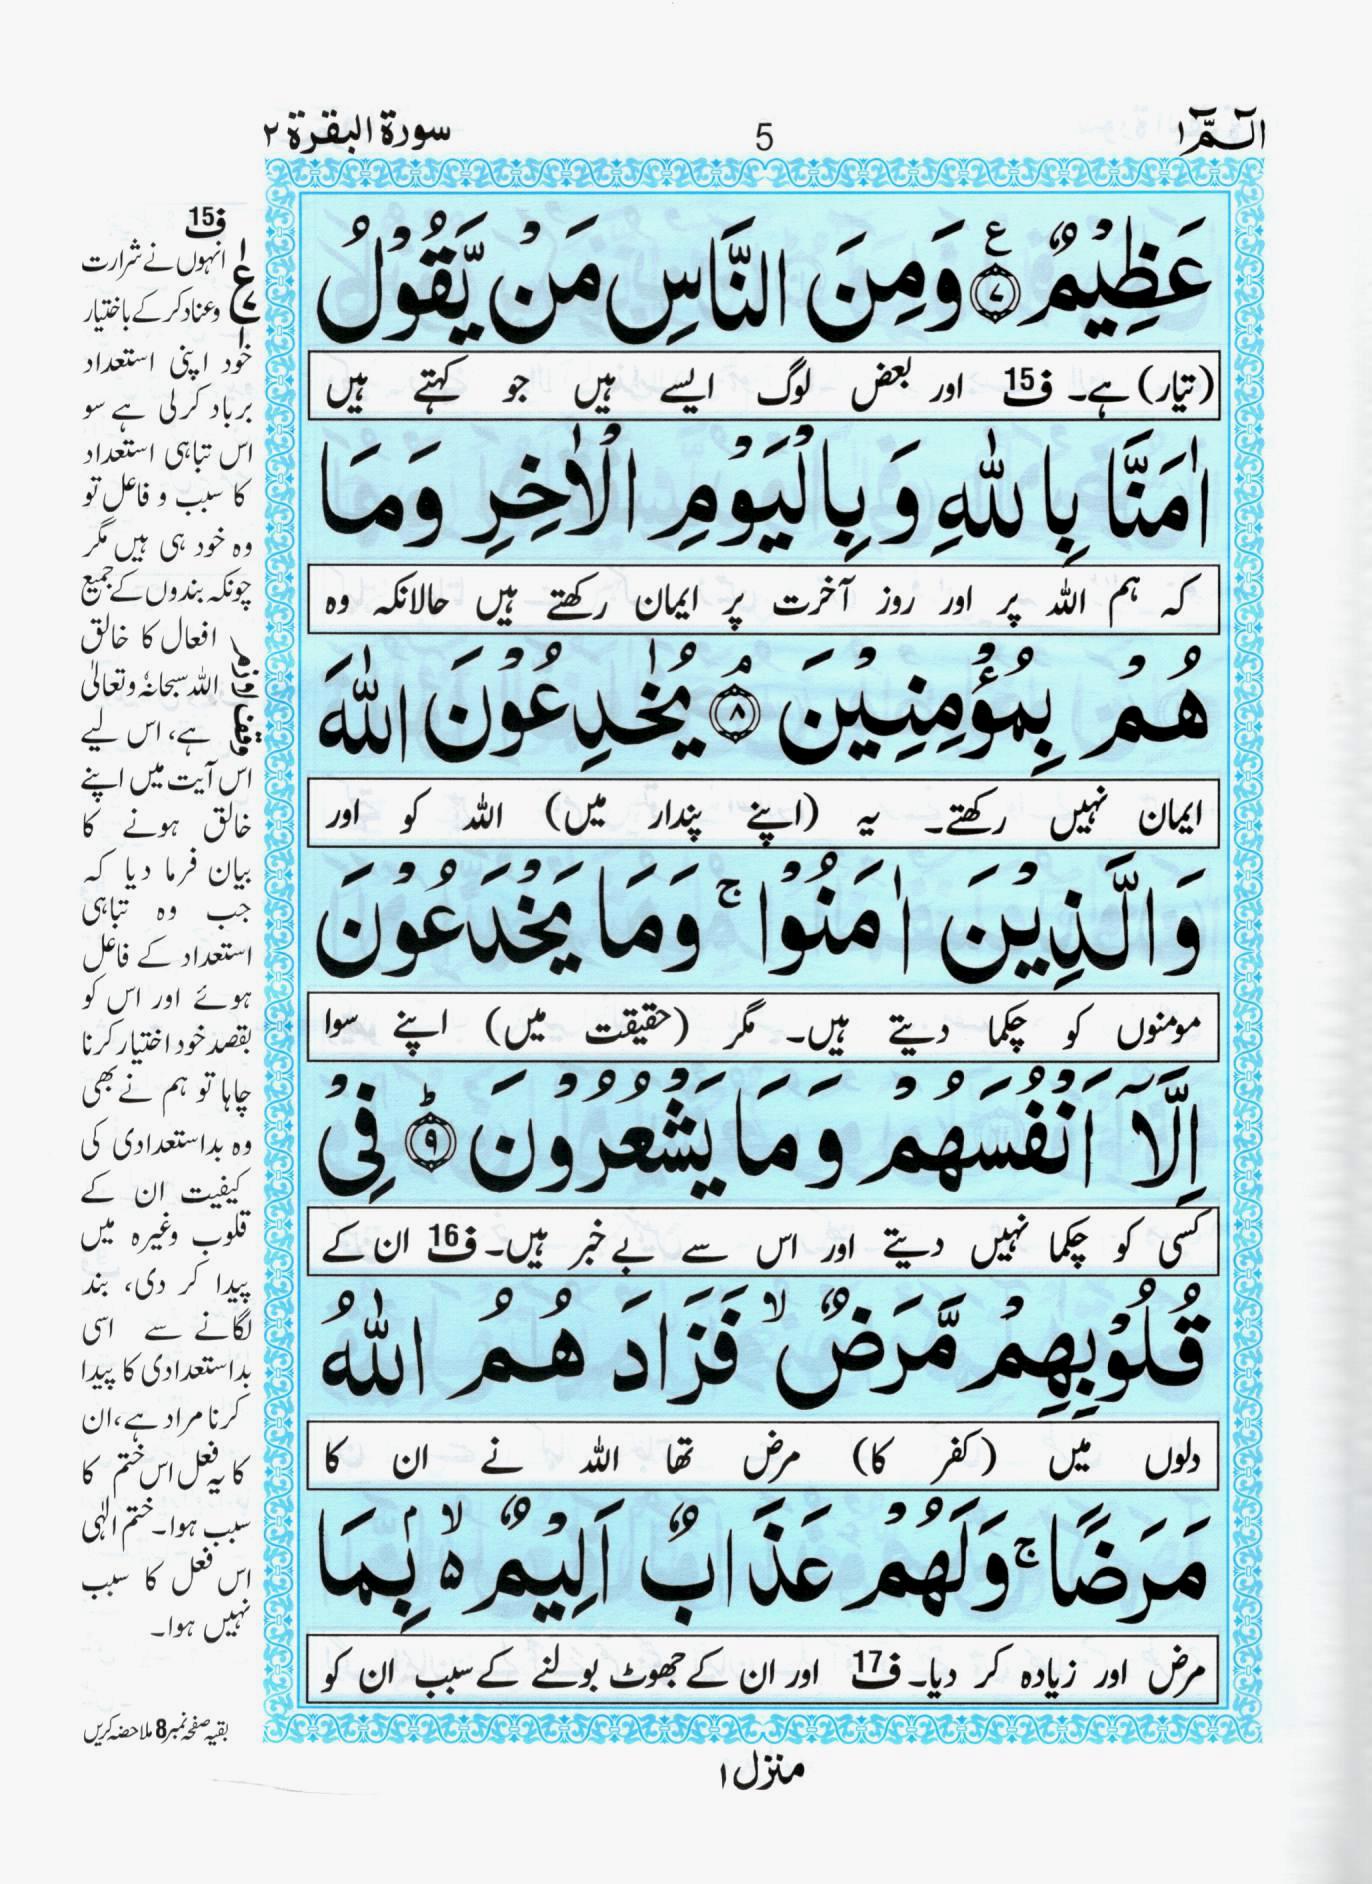 الٓمّٓ ۱
5
سورة البقرة ۲
عَظِيْمٌ ﴿۷﴾ ع وَمِنَ النَّاسِ مَنْ يَّقُوْلُ
(تیار) ہے۔ ف15 اور بعض لوگ ایسے ہیں جو کہتے ہیں
اٰمَنَّا بِاللّٰهِ وَبِالْيَوْمِ الْاٰخِرِ وَمَا
کہ ہم اللہ پر اور روز آخرت پر ایمان رکھتے ہیں حالانکہ وہ
هُمْ بِمُؤْمِنِيْنَ ﴿۸﴾ۘ يُخٰدِعُوْنَ اللّٰهَ
ایمان نہیں رکھتے۔ یہ (اپنے پندار میں) اللہ کو اور
وَالَّذِيْنَ اٰمَنُوْا ۚ وَمَا يَخْدَعُوْنَ
مومنوں کو چکما دیتے ہیں۔ مگر (حقیقت میں) اپنے سوا
اِلَّآ اَنْفُسَهُمْ وَمَا يَشْعُرُوْنَ ﴿۹﴾ؕ فِيْ
کسی کو چکما نہیں دیتے اور اس سے بے خبر ہیں۔ ف16 ان کے
قُلُوْبِهِمْ مَّرَضٌ ۙ فَزَادَهُمُ اللّٰهُ
دلوں میں (کفر کا) مرض تھا اللہ نے ان کا
مَرَضًا ۚ وَلَهُمْ عَذَابٌ اَلِيْمٌ ۵ ۙ بِمَا
مرض اور زیادہ کر دیا۔ ف17 اور ان کے جھوٹ بولنے کے سبب ان کو
ف15
انہوں نے شرارت
وعناد کر کے باختیار
خود اپنی استعداد
برباد کر لی ہے سو
اس تباہی استعداد
کا سبب و فاعل تو
وہ خود ہی ہیں مگر
چونکہ بندوں کے جمیع
افعال کا خالق
اللہ سبحانہٗ وتعالیٰ
ہے، اس لیے
اس آیت میں اپنے
خالق ہونے کا
بیان فرما دیا کہ
جب وہ تباہی
استعداد کے فاعل
ہوئے اور اس کو
بقصد خود اختیار کرنا
چاہا تو ہم نے بھی
وہ بداستعدادی کی
کیفیت ان کے
قلوب وغیرہ میں
پیدا کر دی، بند
لگانے سے اسی
بداستعدادی کا پیدا
کرنا مراد ہے، ان
کا یہ فعل اس ختم کا
سبب ہوا۔ ختم الٰہی
اس فعل کا سبب
نہیں ہوا۔
ع
وقف لازم
بقیہ صفحہ نمبر 8 ملاحضہ کریں
منزل ۱